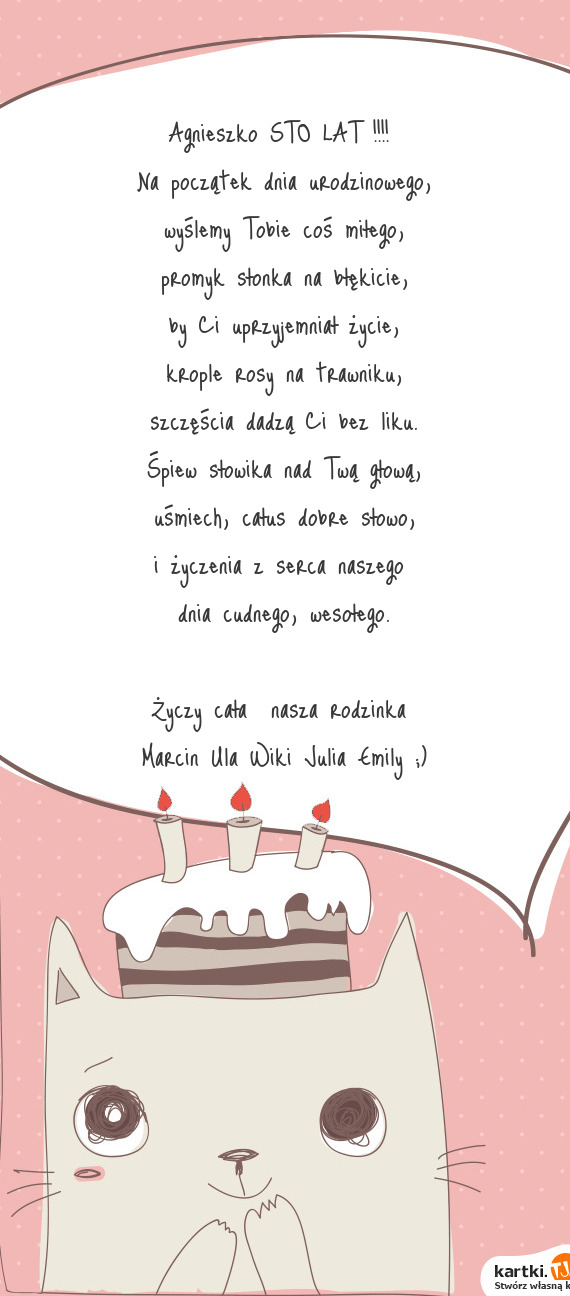 Agnieszko STO LAT !!!!
Na początek dnia urodzinowego,
wyślemy Tobie coś miłego,
promyk słonka na błękicie,
by Ci uprzyjemniał życie,
krople rosy na trawniku,
szczęścia dadzą Ci bez liku.
Śpiew słowika nad Twą głową,
uśmiech, całus dobre słowo,
i życzenia z serca naszego
dnia cudnego, wesołego.
Życzy cała nasza rodzinka
Marcin Ula Wiki Julia Emily ;)
kartki.TJ
Stwórz własną k